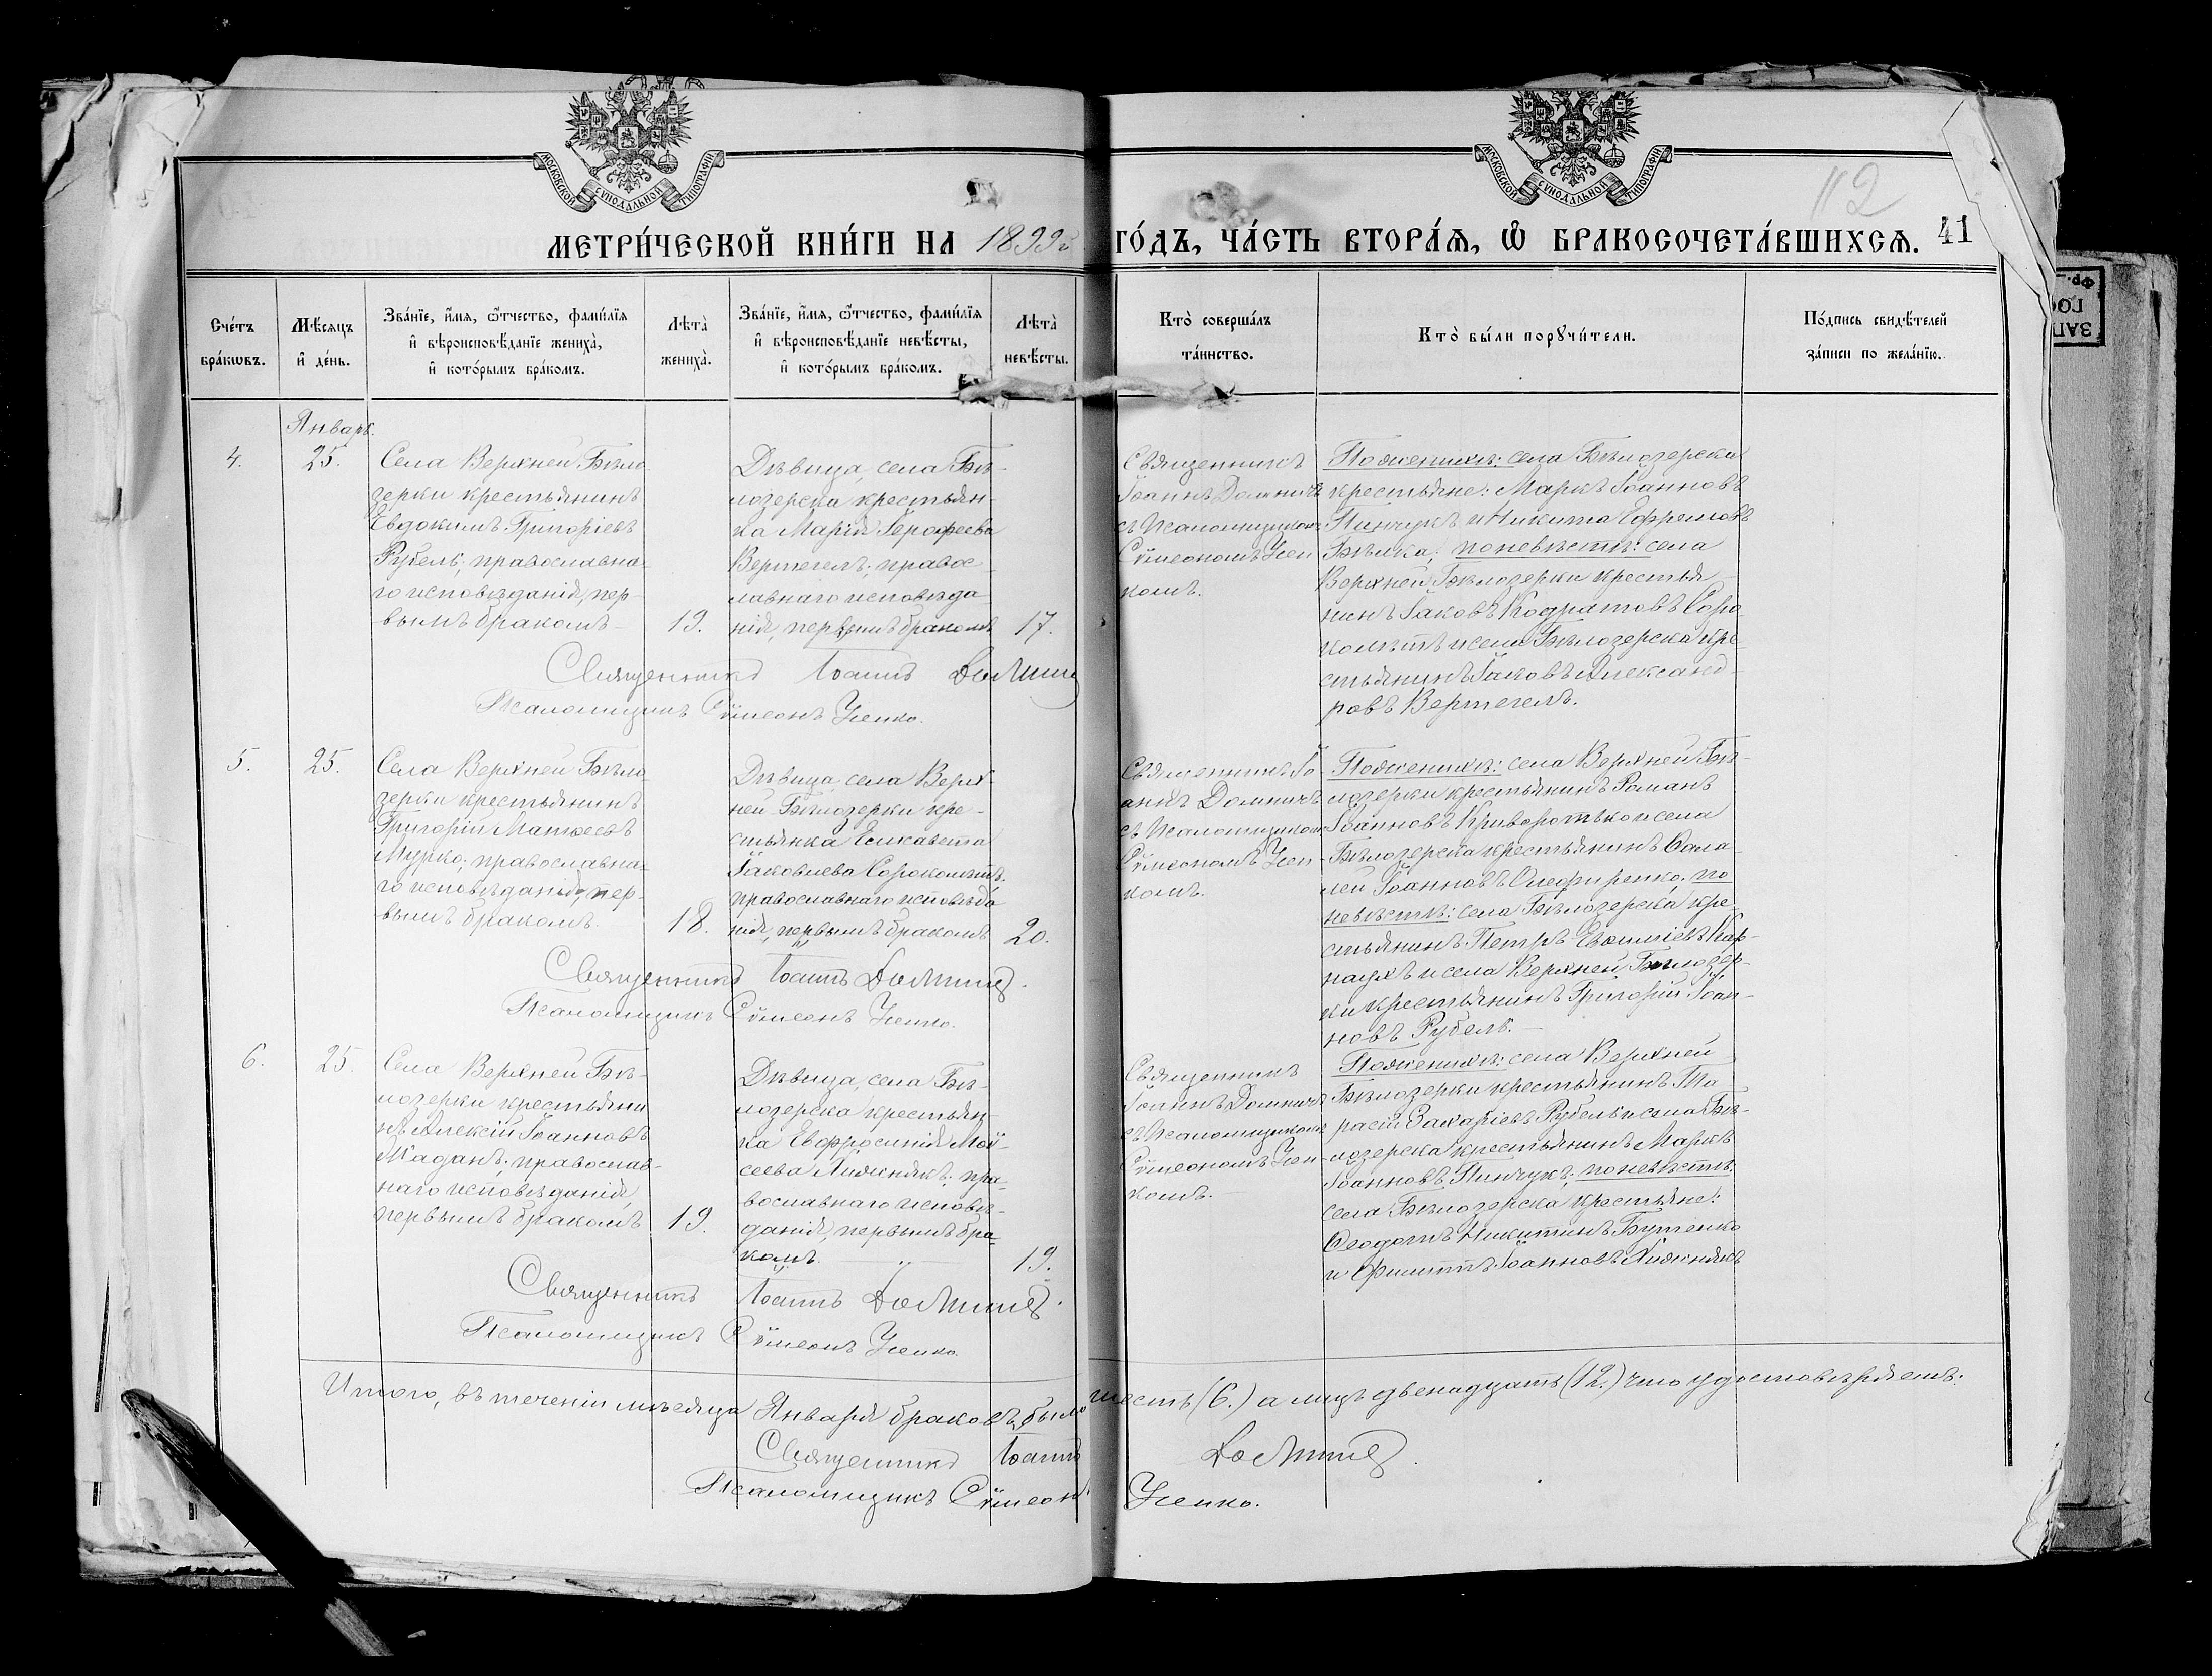 МОСКОВСКОЙ СѴНОДАЛЬНОЙ ТИПОГРАФІИ
МОСКОВСКОЙ СѴНОДАЛЬНОЙ ТИПОГРАФІИ
112
МЕТРИ́ЧЕСКОЙ КНИ́ГИ НА 1899й ГО́ДЪ, ЧА́СТЬ ВТОРА́Ѧ, Ѡ҆ БРАКОСОЧЕТА́ВШИХСѦ. 41
Сче́тъ
бра́кѡвъ.
Мѣ́сѧцъ
и҆ де́нь.
Зва́нїе, и҆́мѧ, ѻ҆́тчество, фами́лїѧ
и҆ вѣроисповѣ́данїе жениха̀,
и҆ кото́рымъ бра́комъ.
Лѣта̀
жениха̀.
Зва́нїе, и҆́мѧ, ѻ҆́тчество, фами́лїѧ
и҆ вѣроисповѣ́данїе невѣ́сты,
и҆ кото́рымъ бра́комъ.
Лѣта̀
невѣ́сты.
Кто̀ соверша́лъ
та́инство.
Кто̀ бы́ли порꙋчи́тели.
По́дпись свидѣ́телей
за́писи по жела́нїю.
Январь.
4.
25.
Села Верхней Бѣло
зерки крестьянинъ
Евдокимъ Григоріевъ
Рубель; православна-
го исповѣданія, пер-
вымъ бракомъ
19.
Дѣвица, села Бѣ-
лозерска крестьян-
ка Марія Іерофеева
Вертегелъ; правос-
лавнаго исповѣда
нія, первымъ бракомъ
17.
Священникъ
Іоаннъ Домничъ
съ Псаломщикомъ
Сѵмеономъ Усен
комъ.
По женихѣ: села Бѣлозерска
крестьяне: Маркъ Іоанновъ
Пинчукъ и Никита Ефремовъ
Бѣлка; по невѣстѣ: села
Верхней Бѣлозерки крестья
нинъ Іаковъ Кодратовъ Соро
колѣтъ и села Бѣлозерска кре
стьянинъ Іаковъ Александ-
ровъ Вертегелъ.
Священникъ Іоаннъ Домничъ
Псаломщикъ Сѵмеонъ Усенко.
5.
25.
Села Верхней Бѣло
зерки крестьянинъ
Григорій Матѳеевъ
Мурко; православна-
го исповѣданія, пер-
вымъ бракомъ.
18.
Дѣвица, села Верх-
ней Бѣлозерки кре-
стьянка Елисавета
Іаковлева Сороколѣтъ;
православнаго исповѣда
нія, первымъ бракомъ
20.
Священникъ Іо-
аннъ Домничъ
съ Псаломщикомъ
Сѵмеономъ Усен-
комъ.
По женихѣ: села Верхней Бѣ-
лозерки крестьянинъ Романъ
Іоанновъ Криворотько и села
Бѣлозерска крестьянинъ Савa
Іоанновъ Олефиренко; по
невѣстѣ: села Бѣлозерска кре-
стьянинъ Петръ Евѳиміевъ Кар-
наухъ и села Верхней Бѣлозер-
ки крестьянинъ Григорій Іоан-
новъ Рубель.
Священникъ Іоаннъ Домничъ.
Псаломщикъ Сѵмеонъ Усенко.
6.
25.
Села Верхней Бѣ-
лозерки крестьяни
нъ Алексій Іоанновъ
Жаданъ; православ-
наго исповѣданія,
первымъ бракомъ
19.
Дѣвица, села Бѣ-
лозерска крестьян-
ка Евфросинія Мои-
сеева Хижнякъ; пра-
вославнаго исповѣ-
данія, первымъ бра-
комъ.
19.
Священникъ
Іоаннъ Домничъ
съ Псаломщикомъ
Сѵмеономъ Усен-
комъ.
По женихѣ: села Верхней
Бѣлозерки крестьянинъ Та
расій Захаріевъ Рубель и села Бѣ-
лозерска крестьянинъ Маркъ
Іоанновъ Пинчукъ; по невѣстѣ:
села Бѣлозерска крестьяне:
Ѳеодотъ Никитинъ Бутенко
и Филиппъ Іоанновъ Хижнякъ
Священникъ Іоаннъ Домничъ.
Псаломщикъ Сѵмеонъ Усенко.
Итого, въ теченіи мѣсяца Января браковъ было шесть (6.) а лицъ двенадцать (12.) что удостовѣряемъ:
Священникъ Іоаннъ Домничъ.
Псаломщикъ Сѵмеонъ Усенко.